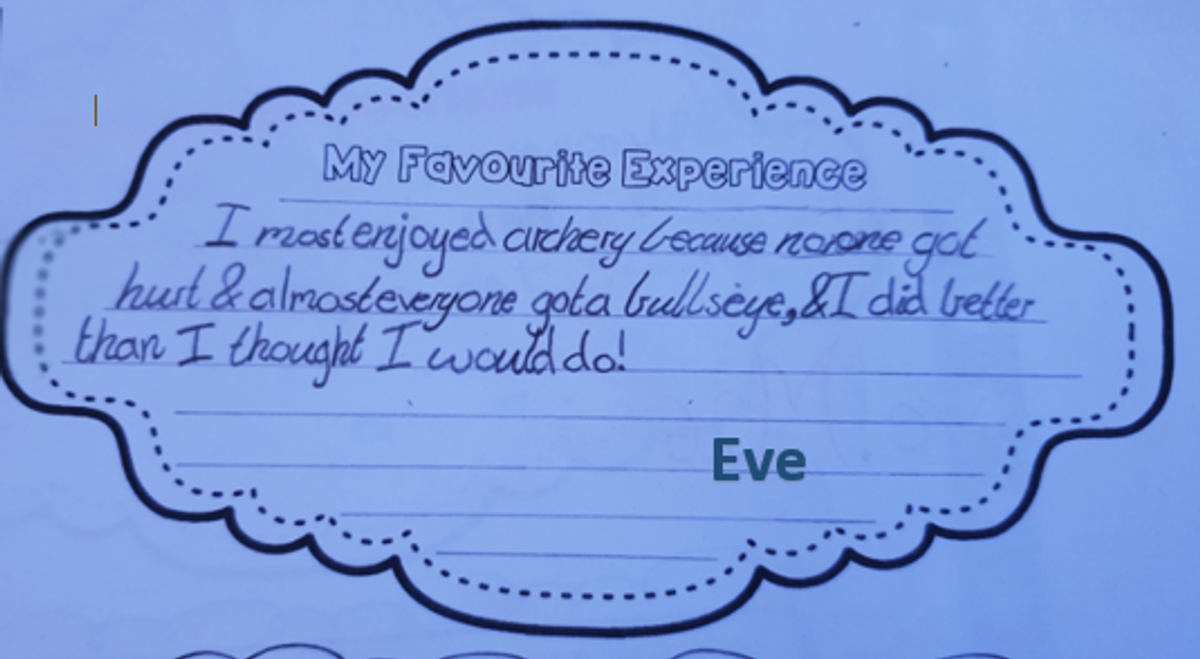 My Favourite Experience
I most enjoyed archery because no one got
hurt & almost everyone got a bullseye, & I did better
than I thought I would do!
Eve